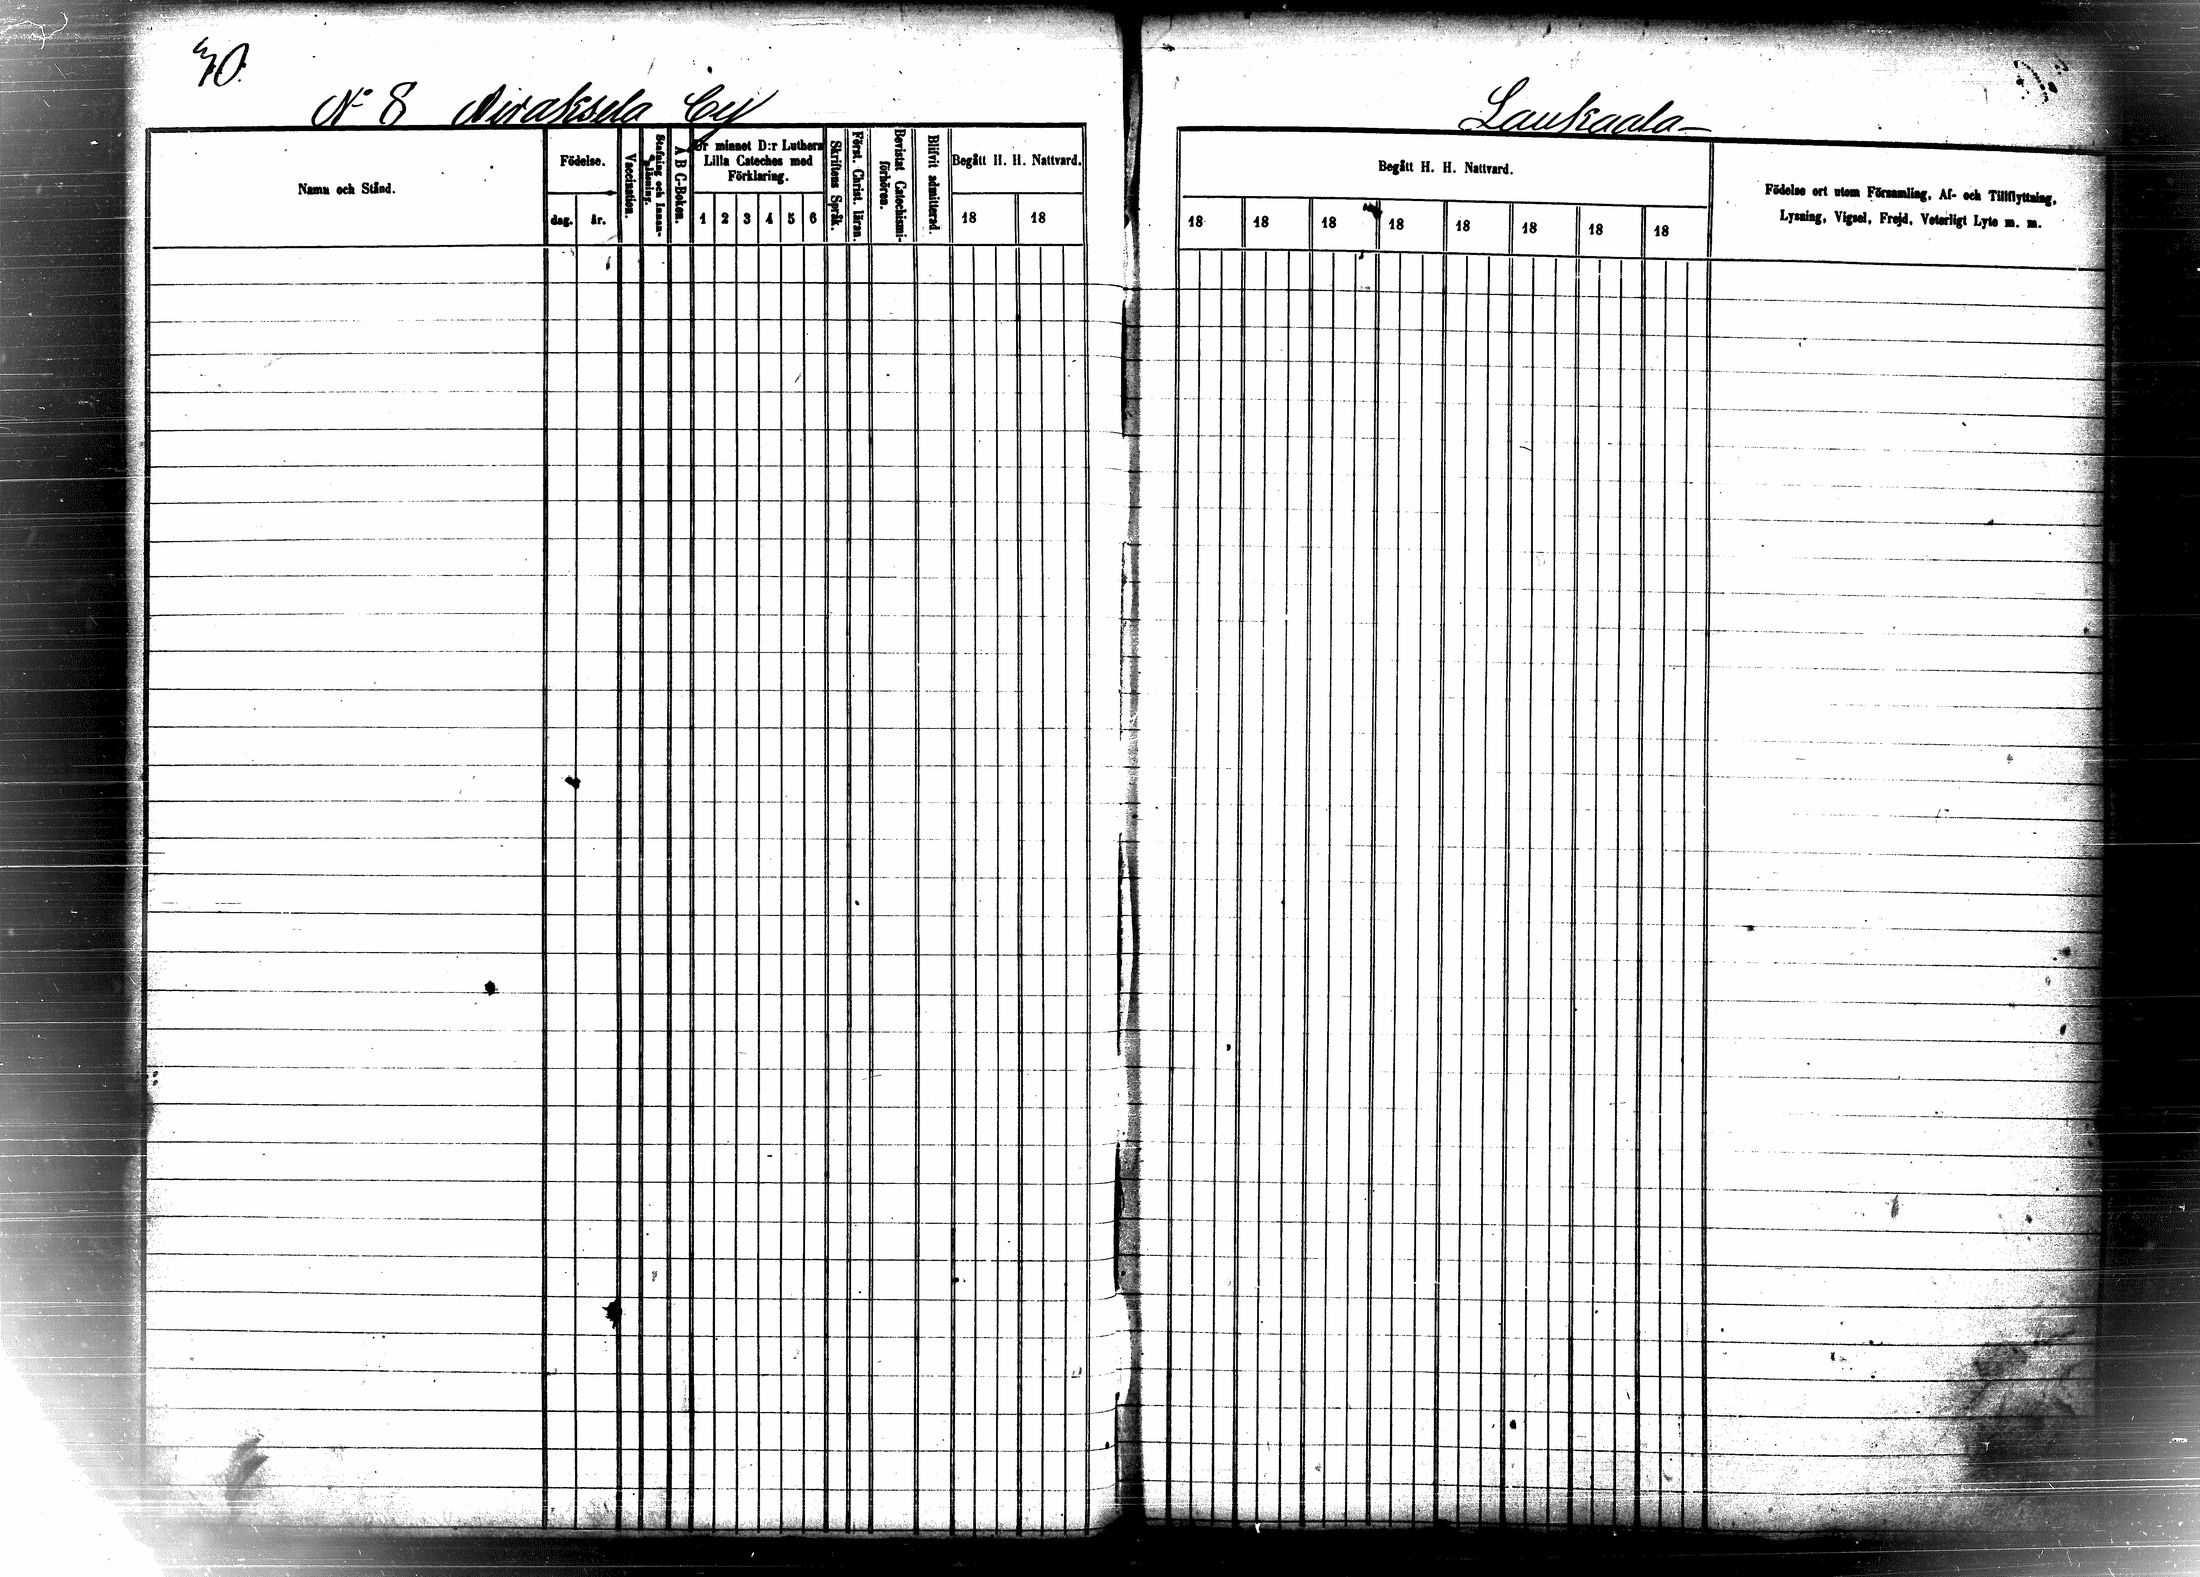 70.
No 8 Niraksela By
Laukaala
Namn och Stånd.
Födelse.
dag.
år.
Vaccination.
Stafning och Innan-
läsning.
A B C-Boken.
Ur minnet D:r Luthers
Lilla Cateches med
Förklaring.
1 2 3 4 5 6
Skriftens Språk.
Först. Christ. läran.
Bevistat Catechismi-
förhören.
Blifvit admitterad.
Begått H. H. Nattvard.
18 18
Begått H. H. Nattvard.
18 18 18 18 18 18 18 18
Födelse ort utom Församling, Af- och Tillflyttning,
Lysning, Vigsel, Frejd, Veterligt Lyte m. m.